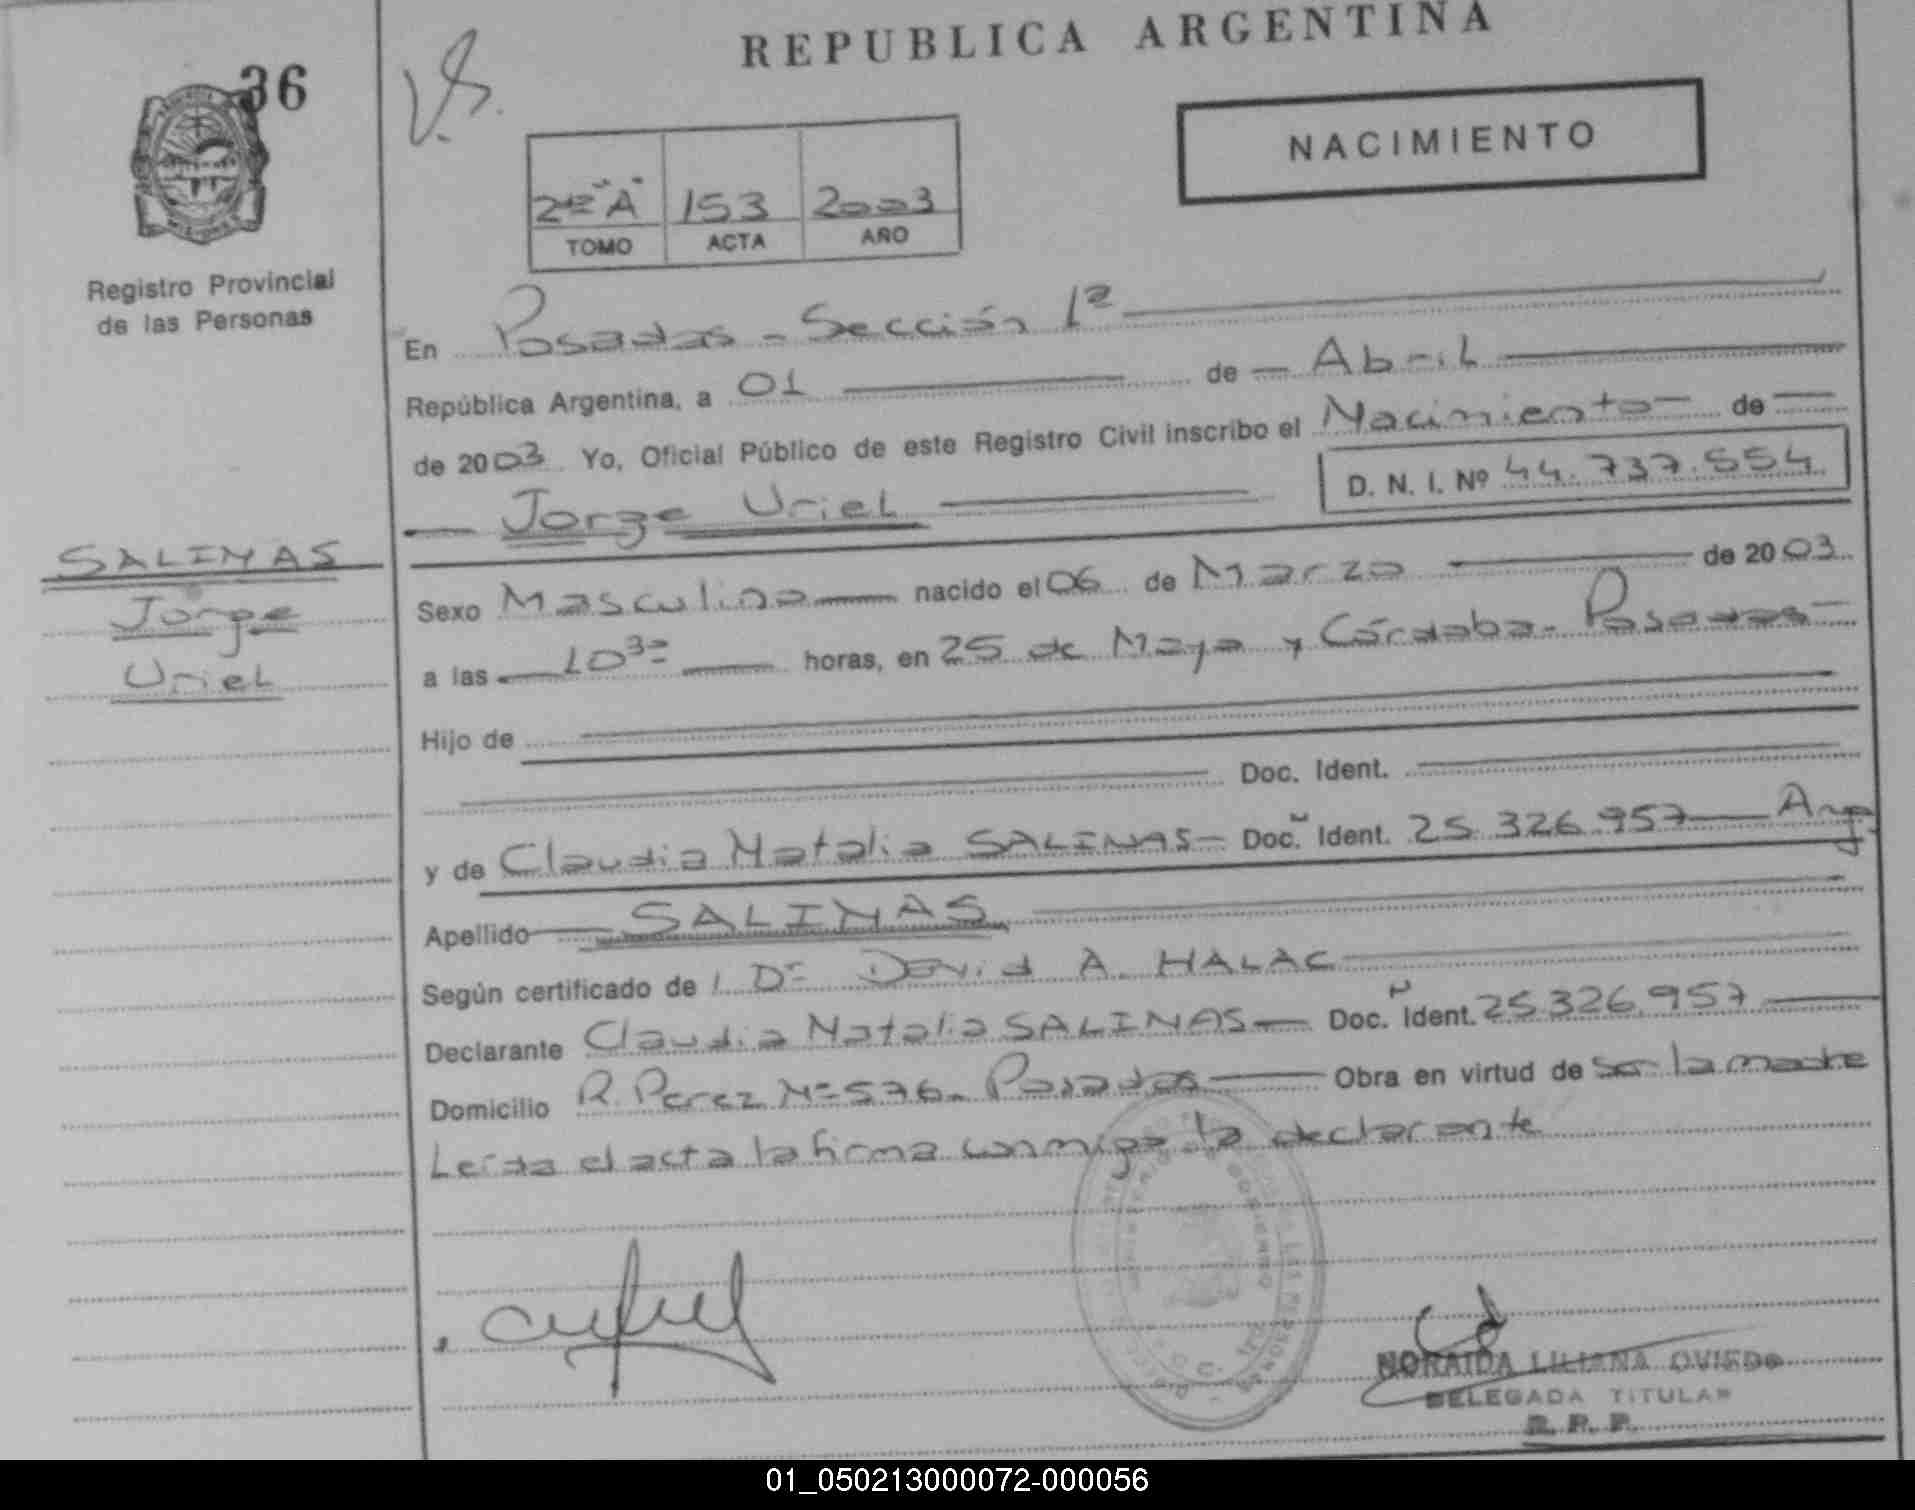 REPUBLICA ARGENTINA
36
V.S.
NACIMIENTO
2º "A" 153 2003
TOMO ACTA AÑO
Registro Provincial
de las Personas
En Posadas - Sección 1ª
República Argentina, a 01 de Abril
de 2003 Yo, Oficial Público de este Registro Civil inscribo el Nacimiento de
Jorge Uriel D. N. I. Nº 44.737.554
SALINAS
Jorge
Uriel
Sexo Masculino nacido el 06 de Marzo de 2003
a las 10³⁰ horas, en 25 de Mayo y Córdoba - Posadas
Hijo de
Doc. Ident.
y de Claudia Natalia SALINAS - Doc. Ident. 25.326.957 Arg
Apellido SALINAS
Según certificado de l Dr David A. HALAC
Declarante Claudia Natalia SALINAS Doc. Ident. 25.326.957
Domicilio R. Perez Nº 576 - Posadas Obra en virtud de ser la madre
Leída el acta la firma conmigo la declarante
NORAIDA LILIANA OVIEDO
DELEGADA TITULAR
R. P. P.
01_050213000072-000056